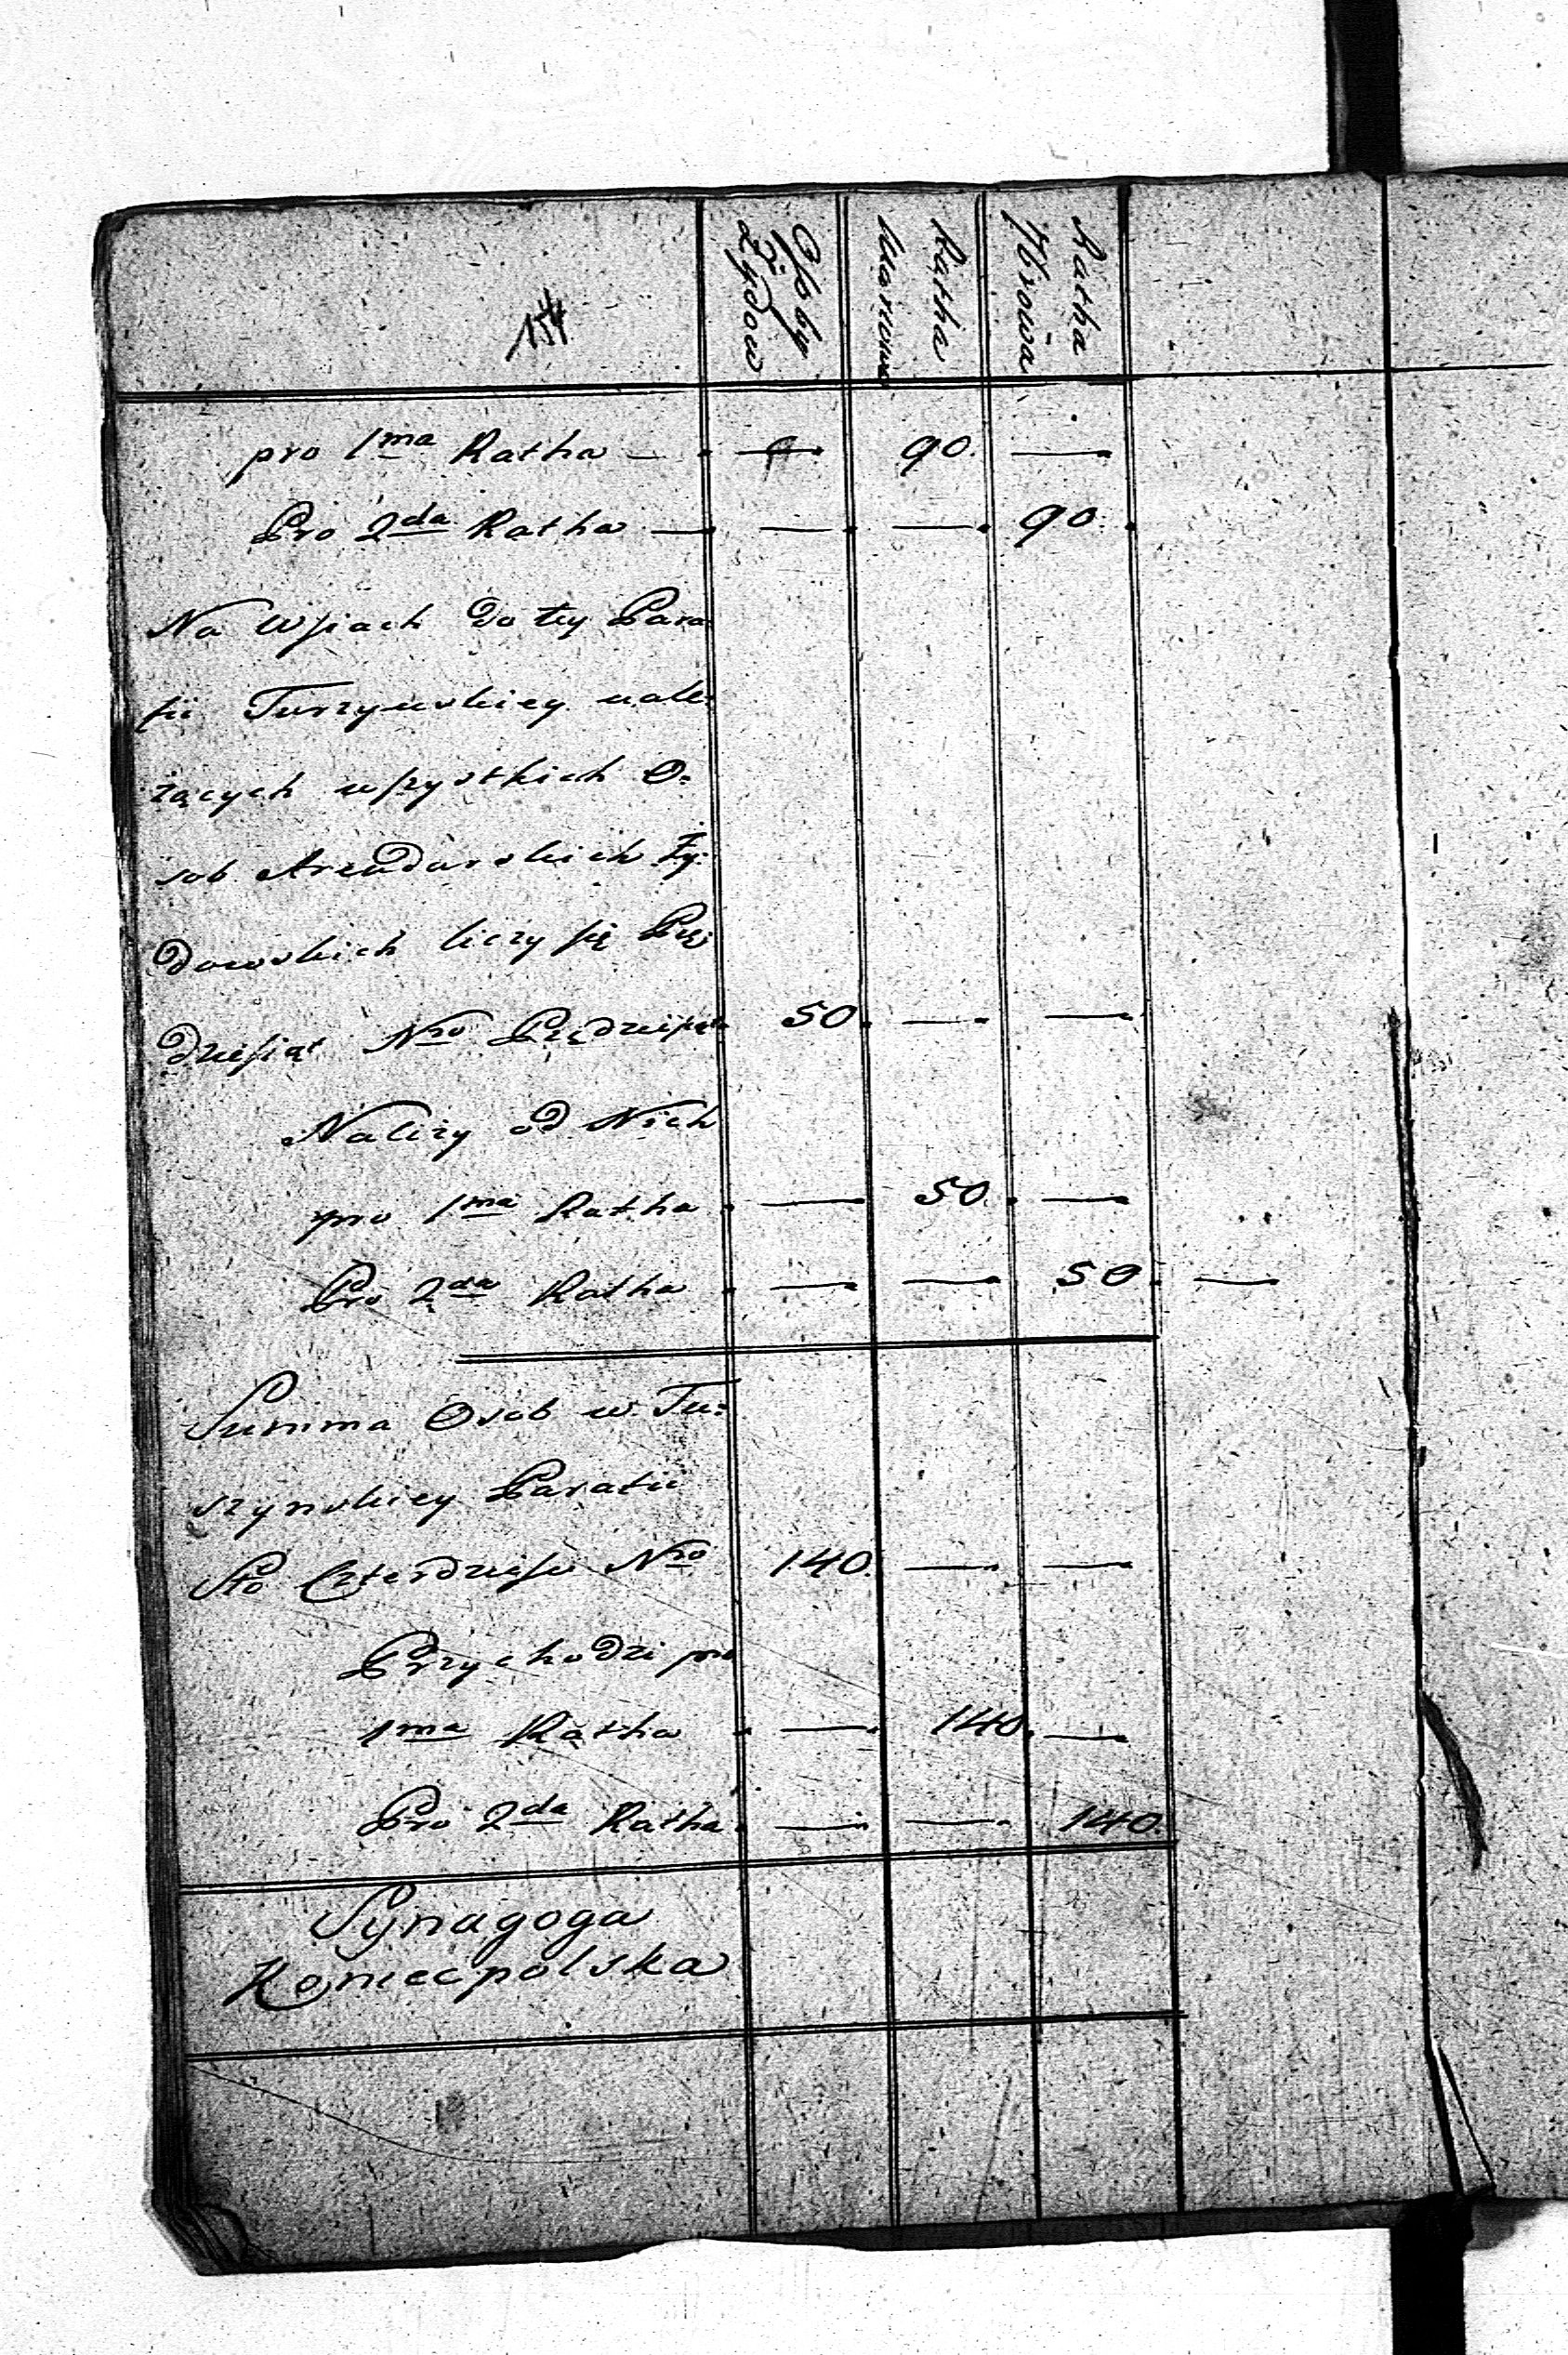 Osoby Żydow
Ratha Marcowa
Ratha 7browa
pro 1ma Ratha — — 90. —
Pro 2da Ratha — — — 90.
Na Wsiach do tey Para
fii Tuszynskiey nale:
żących wszystkich O:
sob Arendarskich Ży:
dowskich liczy się Pię:
dziesiąt Nro Piędziesiąt 50. — —
Należy od Nich
pro 1ma Ratha — 50. —
Pro 2da Ratha — — 50. —
Summa Osob w Tu:
szynskiey Parafii
Sto Czterdzieści Nro 140. — —
Przychodzi pro
1ma Ratha — 140. —
Pro 2da Ratha — — 140
Synagoga
Koniecpolska